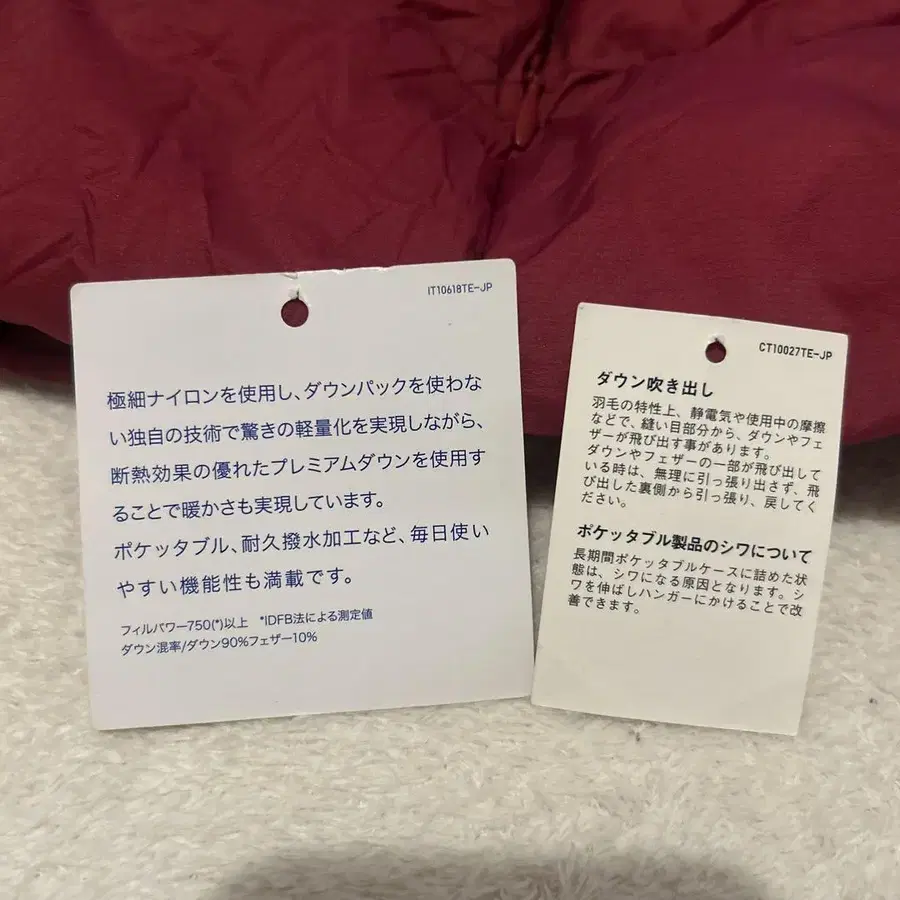 IT10618TE-JP
極細ナイロンを使用し、ダウンパックを使わな
い独自の技術で驚きの軽量化を実現しながら、
断熱効果の優れたプレミアムダウンを使用す
ることで暖かさも実現しています。
ポケッタブル、耐久撥水加工など、毎日使い
やすい機能性も満載です。
フィルパワー750(*)以上 *IDFB法による測定値
ダウン混率/ダウン90%フェザー10%
CT10027TE-JP
ダウン吹き出し
羽毛の特性上、静電気や使用中の摩擦
などで、縫い目部分から、ダウンやフェ
ザーが飛び出す事があります。
ダウンやフェザーの一部が飛び出して
いる時は、無理に引っ張り出さず、飛
び出した裏側から引っ張り、戻してく
ださい。
ポケッタブル製品のシワについて
長期間ポケッタブルケースに詰めた状
態は、シワになる原因となります。シ
ワを伸ばしハンガーにかけることで改
善できます。